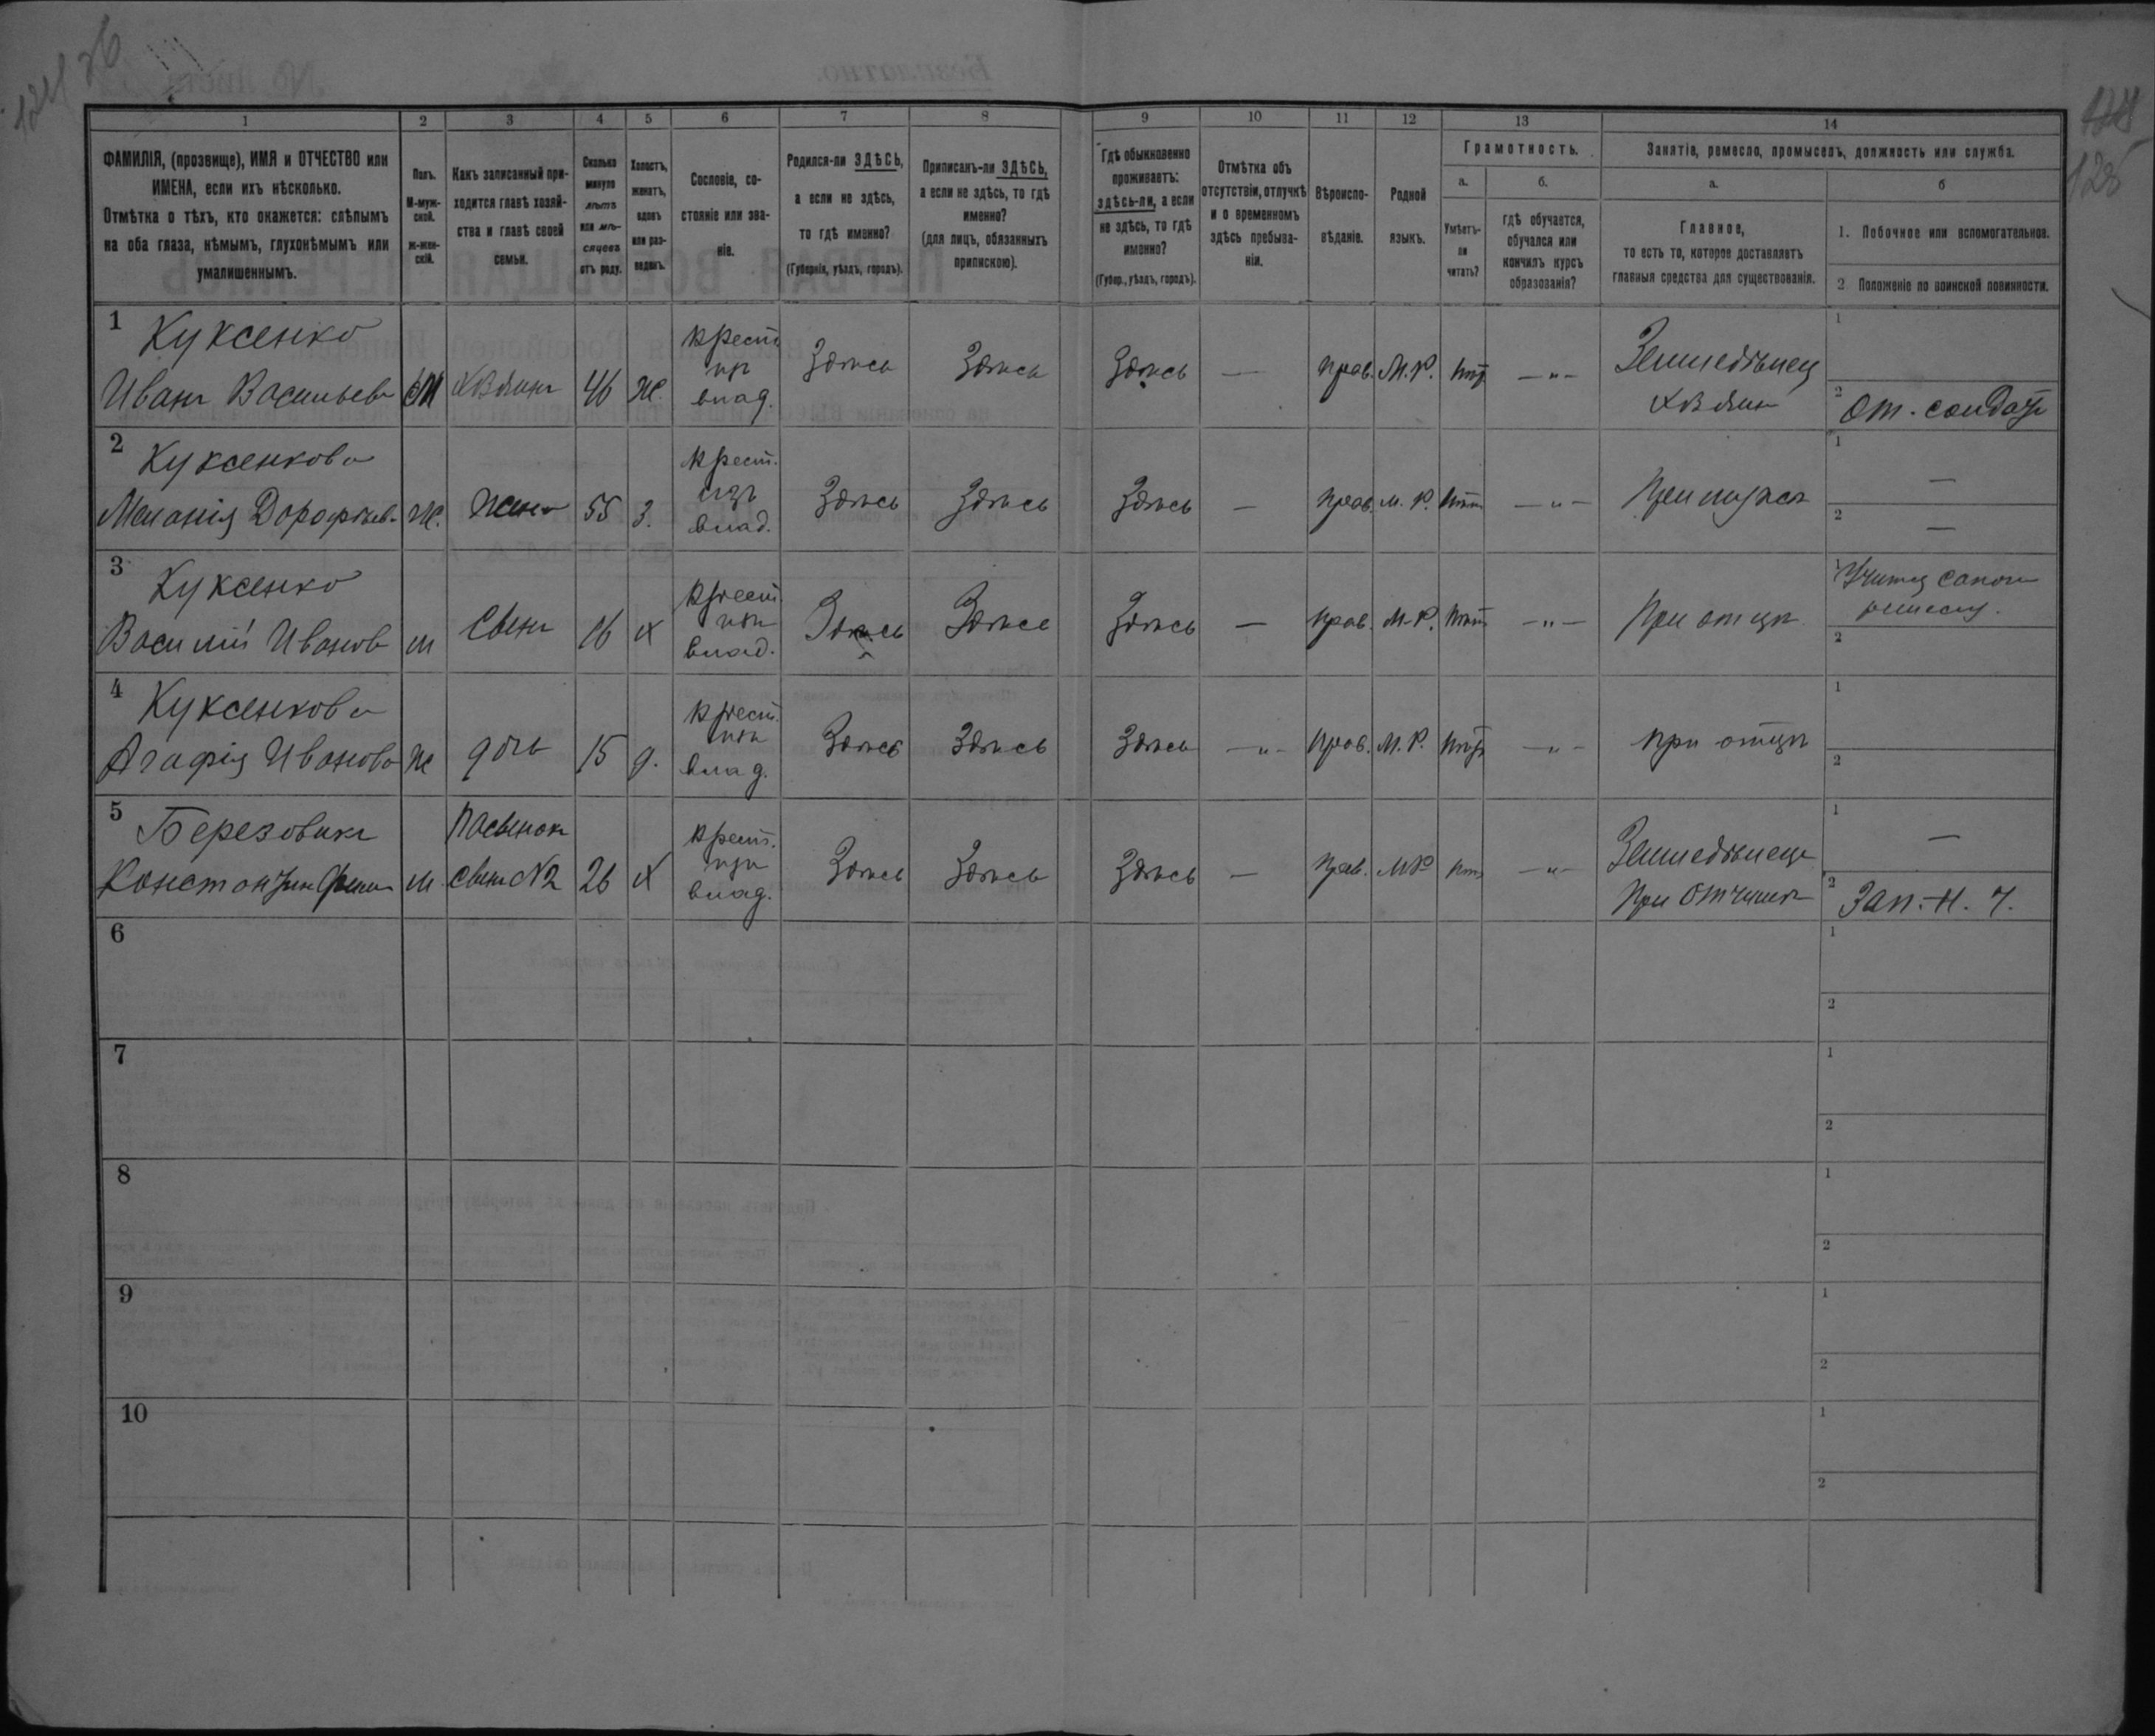 1 2 3 4 5 6 7 8 9 10 11 12 13 14
ФАМИЛІЯ, (прозвище), ИМЯ и ОТЧЕСТВО или
ИМЕНА, если ихъ нѣсколько.
Отмѣтка о тѣхъ, кто окажется: слѣпымъ
на оба глаза, нѣмымъ, глухонѣмымъ или
умалишеннымъ.
Полъ.
М-муж-
ской.
ж-жен-
скій.
Какъ записанный при-
ходится главѣ хозяй-
ства и главѣ своей
семьи.
Сколько
минуло
лѣтъ
или мѣ-
сяцевъ
отъ роду.
Холостъ,
женатъ,
вдовъ
или раз-
веденъ.
Сословіе, со-
стояніе или зва-
ніе.
Родился-ли ЗДѢСЬ,
а если не здѣсь,
то гдѣ именно?
(Губернія, уѣздъ, городъ).
Приписанъ-ли ЗДѢСЬ,
а если не здѣсь, то гдѣ
именно?
(для лицъ, обязанныхъ
припискою).
Гдѣ обыкновенно
проживаетъ:
здѣсь-ли, а если
не здѣсь, то гдѣ
именно?
(Губер., уѣздъ, городъ).
Отмѣтка объ
отсутствіи, отлучкѣ
и о временномъ
здѣсь пребыва-
ніи.
Вѣроиспо-
вѣданіе.
Родной
языкъ.
Грамотность.
а.
Умѣетъ-
ли
читать?
б.
гдѣ обучается,
обучался или
кончилъ курсъ
образованія?
Занятіе, ремесло, промыселъ, должность или служба.
а.
Главное,
то есть то, которое доставляетъ
главныя средства для существованія.
б
1. Побочное или вспомогательное.
2 Положеніе по воинской повинности.
1 Куксенко
Иванъ Васильевъ М Хозяинъ 46 ж. крест. влад. Здѣсь Здѣсь Здѣсь — прав. М.Р. нѣтъ —"— Земледѣлец
хозяин
1
2 От. солдатъ
2 Куксенкова
Меланія Дорофѣев. ж. жена 55 з. крест. изъ влад. Здѣсь Здѣсь Здѣсь — прав. М.Р. нѣтъ —"— При мужѣ
1 —
2 —
3 Куксенко
Василій Иванов м Сынъ 16 х крест. изъ влад. Здѣсь Здѣсь Здѣсь — прав. М.Р. нѣтъ —"— При отцѣ
1
2
4 Куксенкова
Агафія Иванова ж дочь 15 д. крест. изъ влад. Здѣсь Здѣсь Здѣсь —"— прав. М.Р. нѣтъ —"— при отцѣ
1
2
5 Березовикъ
Константин м. Пасынок
сынъ №2 26 х крест. изъ влад. Здѣсь Здѣсь Здѣсь — прав. МР нѣтъ —"— Земледѣлецъ
При отчимѣ
1 —
2 Зап. Н. Ч.
6
1
2
7
1
2
8
1
2
9
1
2
10
1
2